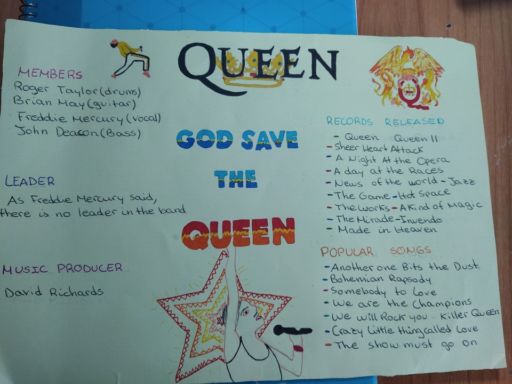 QUEEN
MEMBERS
Roger Taylor (drums)
Brian May (guitar)
Freddie Mercury (vocal)
John Deacon (Bass)
LEADER
As Freddie Mercury said,
there is no leader in the band
MUSIC PRODUCER
David Richards
GOD SAVE
THE
QUEEN
RECORDS RELEASED
- Queen Queen II
- Sheer Heart Attack
- A Night At the Opera
- A day at the Races
- News of the world - Jazz
- The Game - Hot Space
- The Works - A Kind of Magic
- The Mirade - Invendo
- Made in Heaven
POPULAR SONGS
- Another one Bits the Dust
- Bohemian Rapsody
- Somebody to Love
- We are the Champions
- We will Rock you - Killer Queen
- Crazy Little thing called Love
- The show must go on